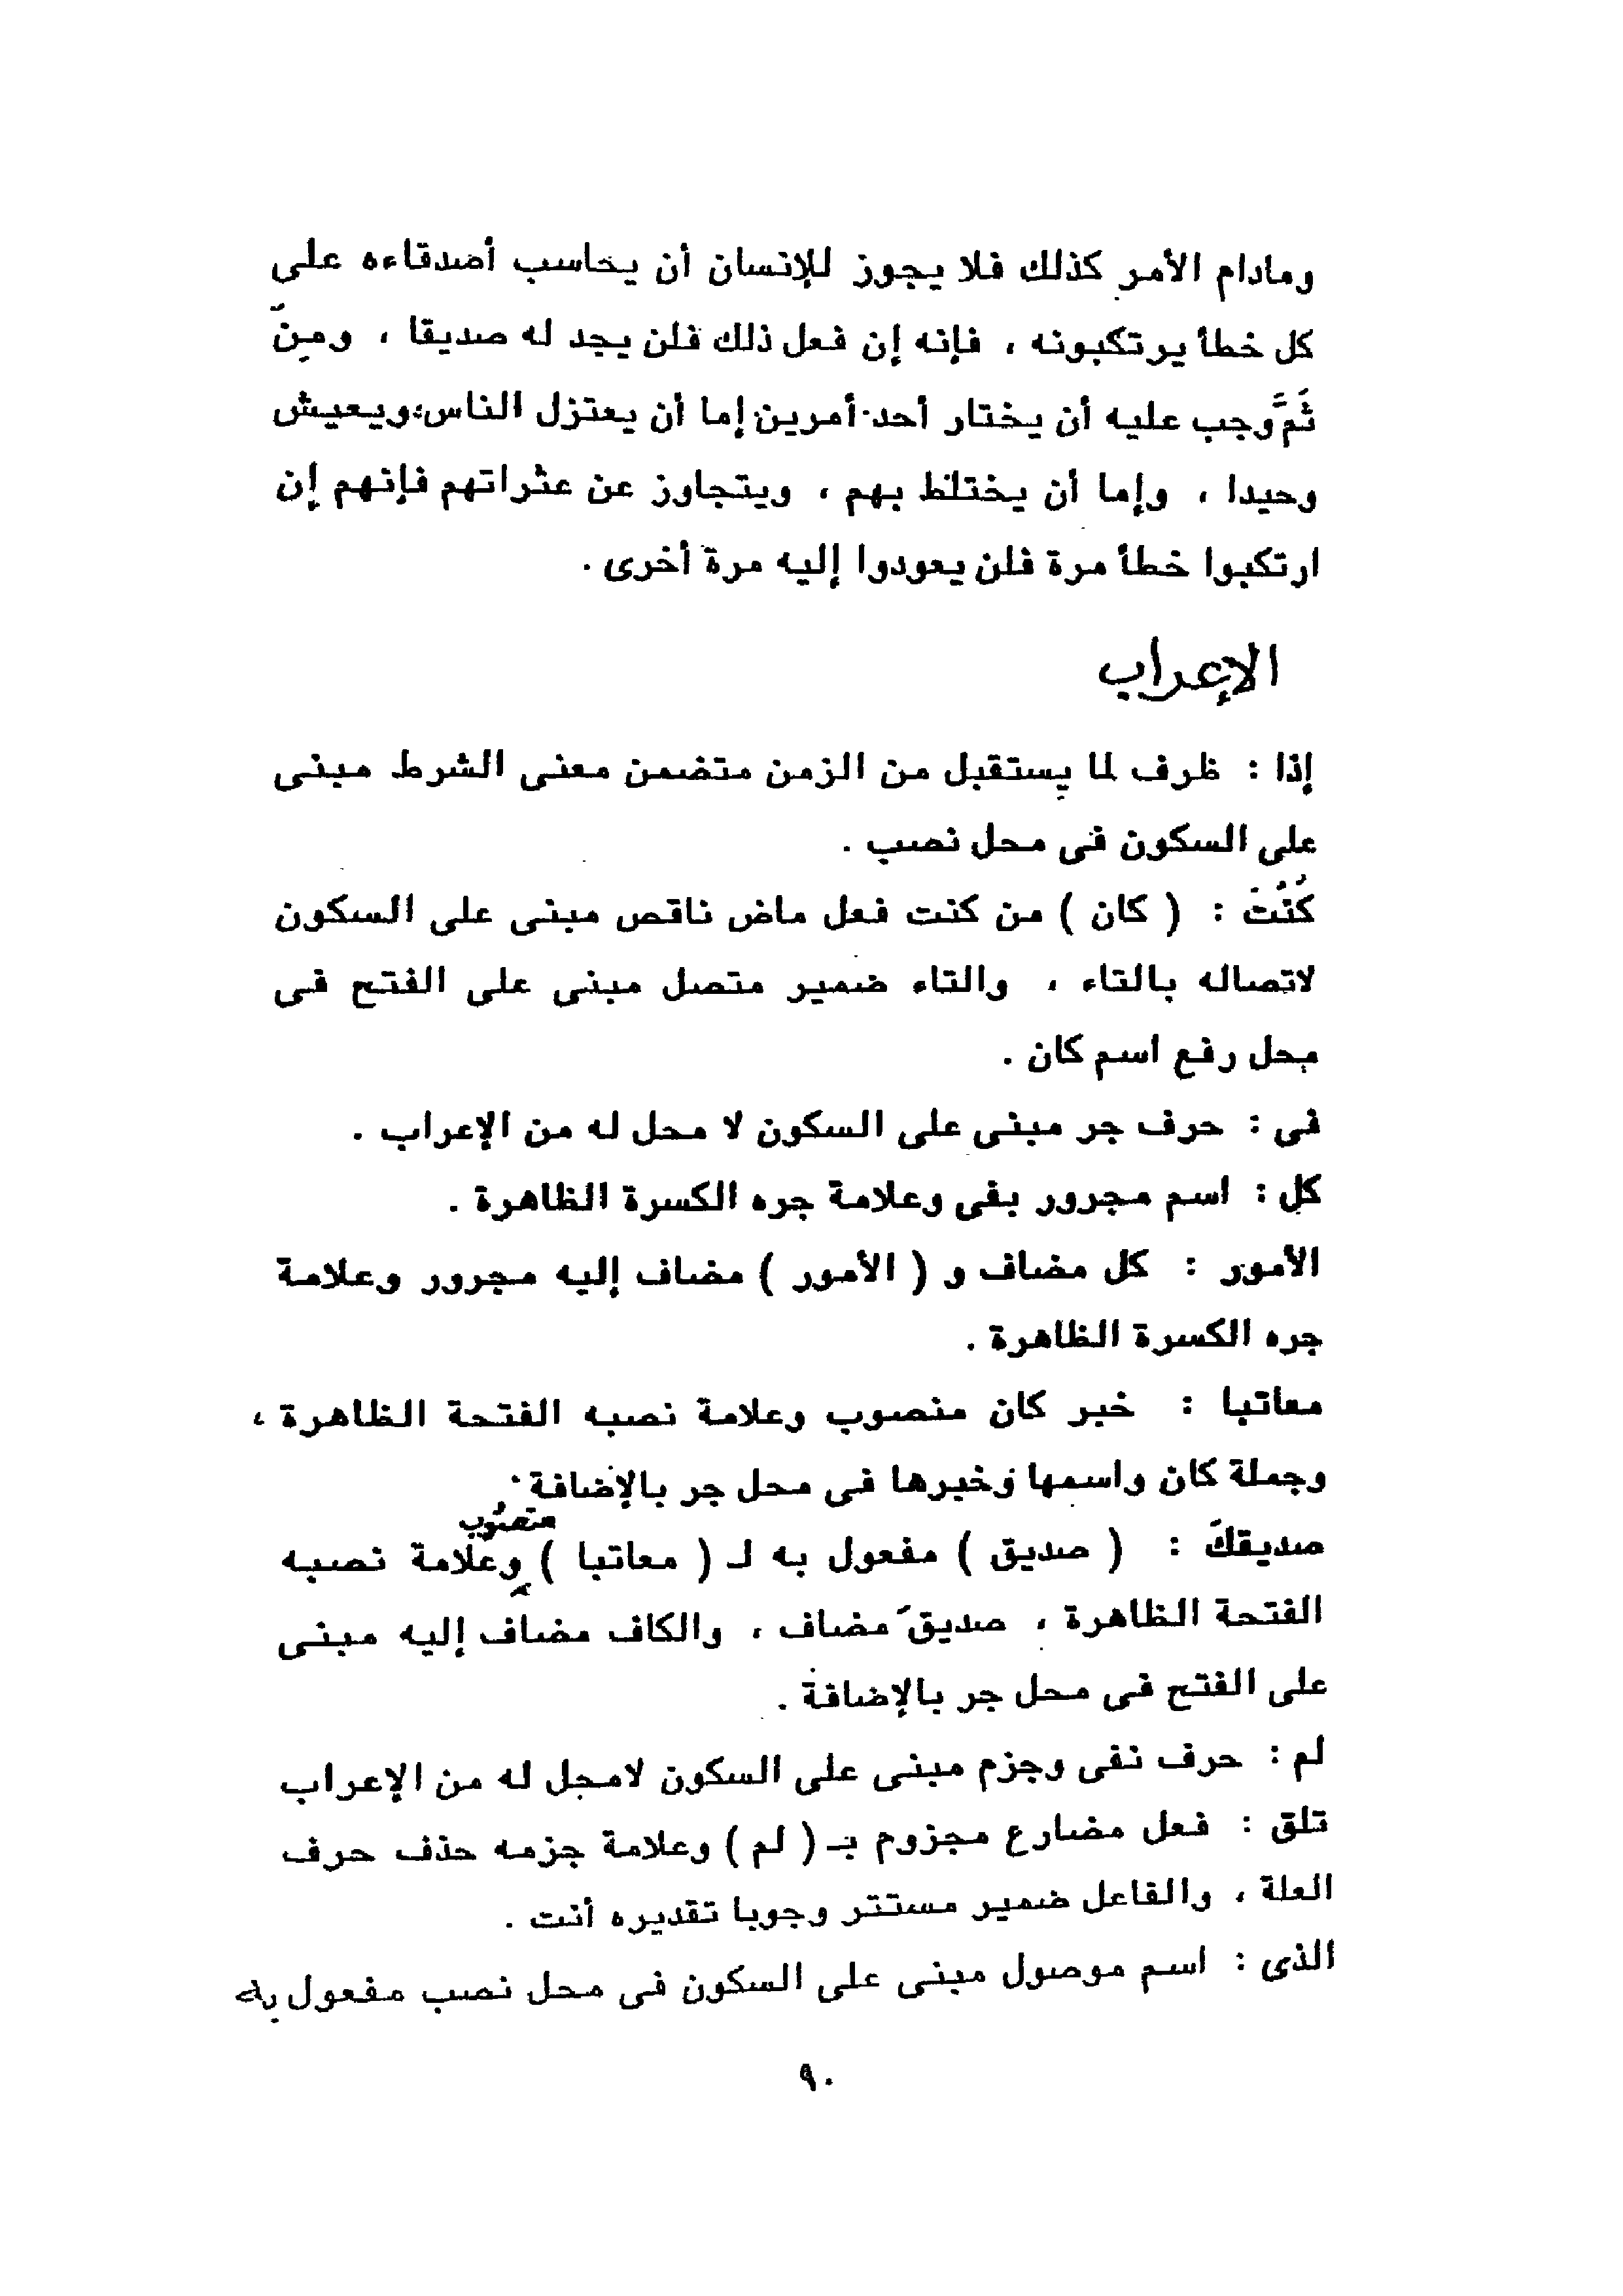 ومادام الأمر كذلك فلا يجوز للإنسان أن يحاسب أصدقاءه على
كل خطأ يرتكبونه ، فإنه إن فعل ذلك فلن يجد له صديقا ، ومن
ثَمَّ وجب عليه أن يختار أحد أمرين إما أن يعتزل الناس ، ويعيش
وحيدا ، وإما أن يختلط بهم ، ويتجاوز عن عثراتهم فإنهم إن
ارتكبوا خطأ مرة فلن يعودوا إليه مرة أخرى .
الإعراب
إذا : ظرف لما يستقبل من الزمن متضمن معنى الشرط مبنى
على السكون فى محل نصب .
كُنْتَ : ( كان ) من كنت فعل ماض ناقص مبنى على السكون
لاتصاله بالتاء ، والتاء ضمير متصل مبنى على الفتح فى
محل رفع اسم كان .
فى : حرف جر مبنى على السكون لا محل له من الإعراب .
كل : اسم مجرور بفى وعلامة جره الكسرة الظاهرة .
الأمور : كل مضاف و ( الأمور ) مضاف إليه مجرور وعلامة
جره الكسرة الظاهرة .
معاتبا : خبر كان منصوب وعلامة نصبه الفتحة الظاهرة ،
وجملة كان واسمها وخبرها فى محل جر بالإضافة .
منصوب
صديقكَ : ( صديق ) مفعول به لـ ( معاتبا ) وعلامة نصبه
الفتحة الظاهرة ، صديقَ مضاف ، والكاف مضاف إليه مبنى
على الفتح فى محل جر بالإضافة .
لم : حرف نفى وجزم مبنى على السكون لامحل له من الإعراب
تلق : فعل مضارع مجزوم بـ ( لم ) وعلامة جزمه حذف حرف
العلة ، والفاعل ضمير مستتر وجوبا تقديره أنت .
الذى : اسم موصول مبنى على السكون فى محل نصب مفعول به
٩٠